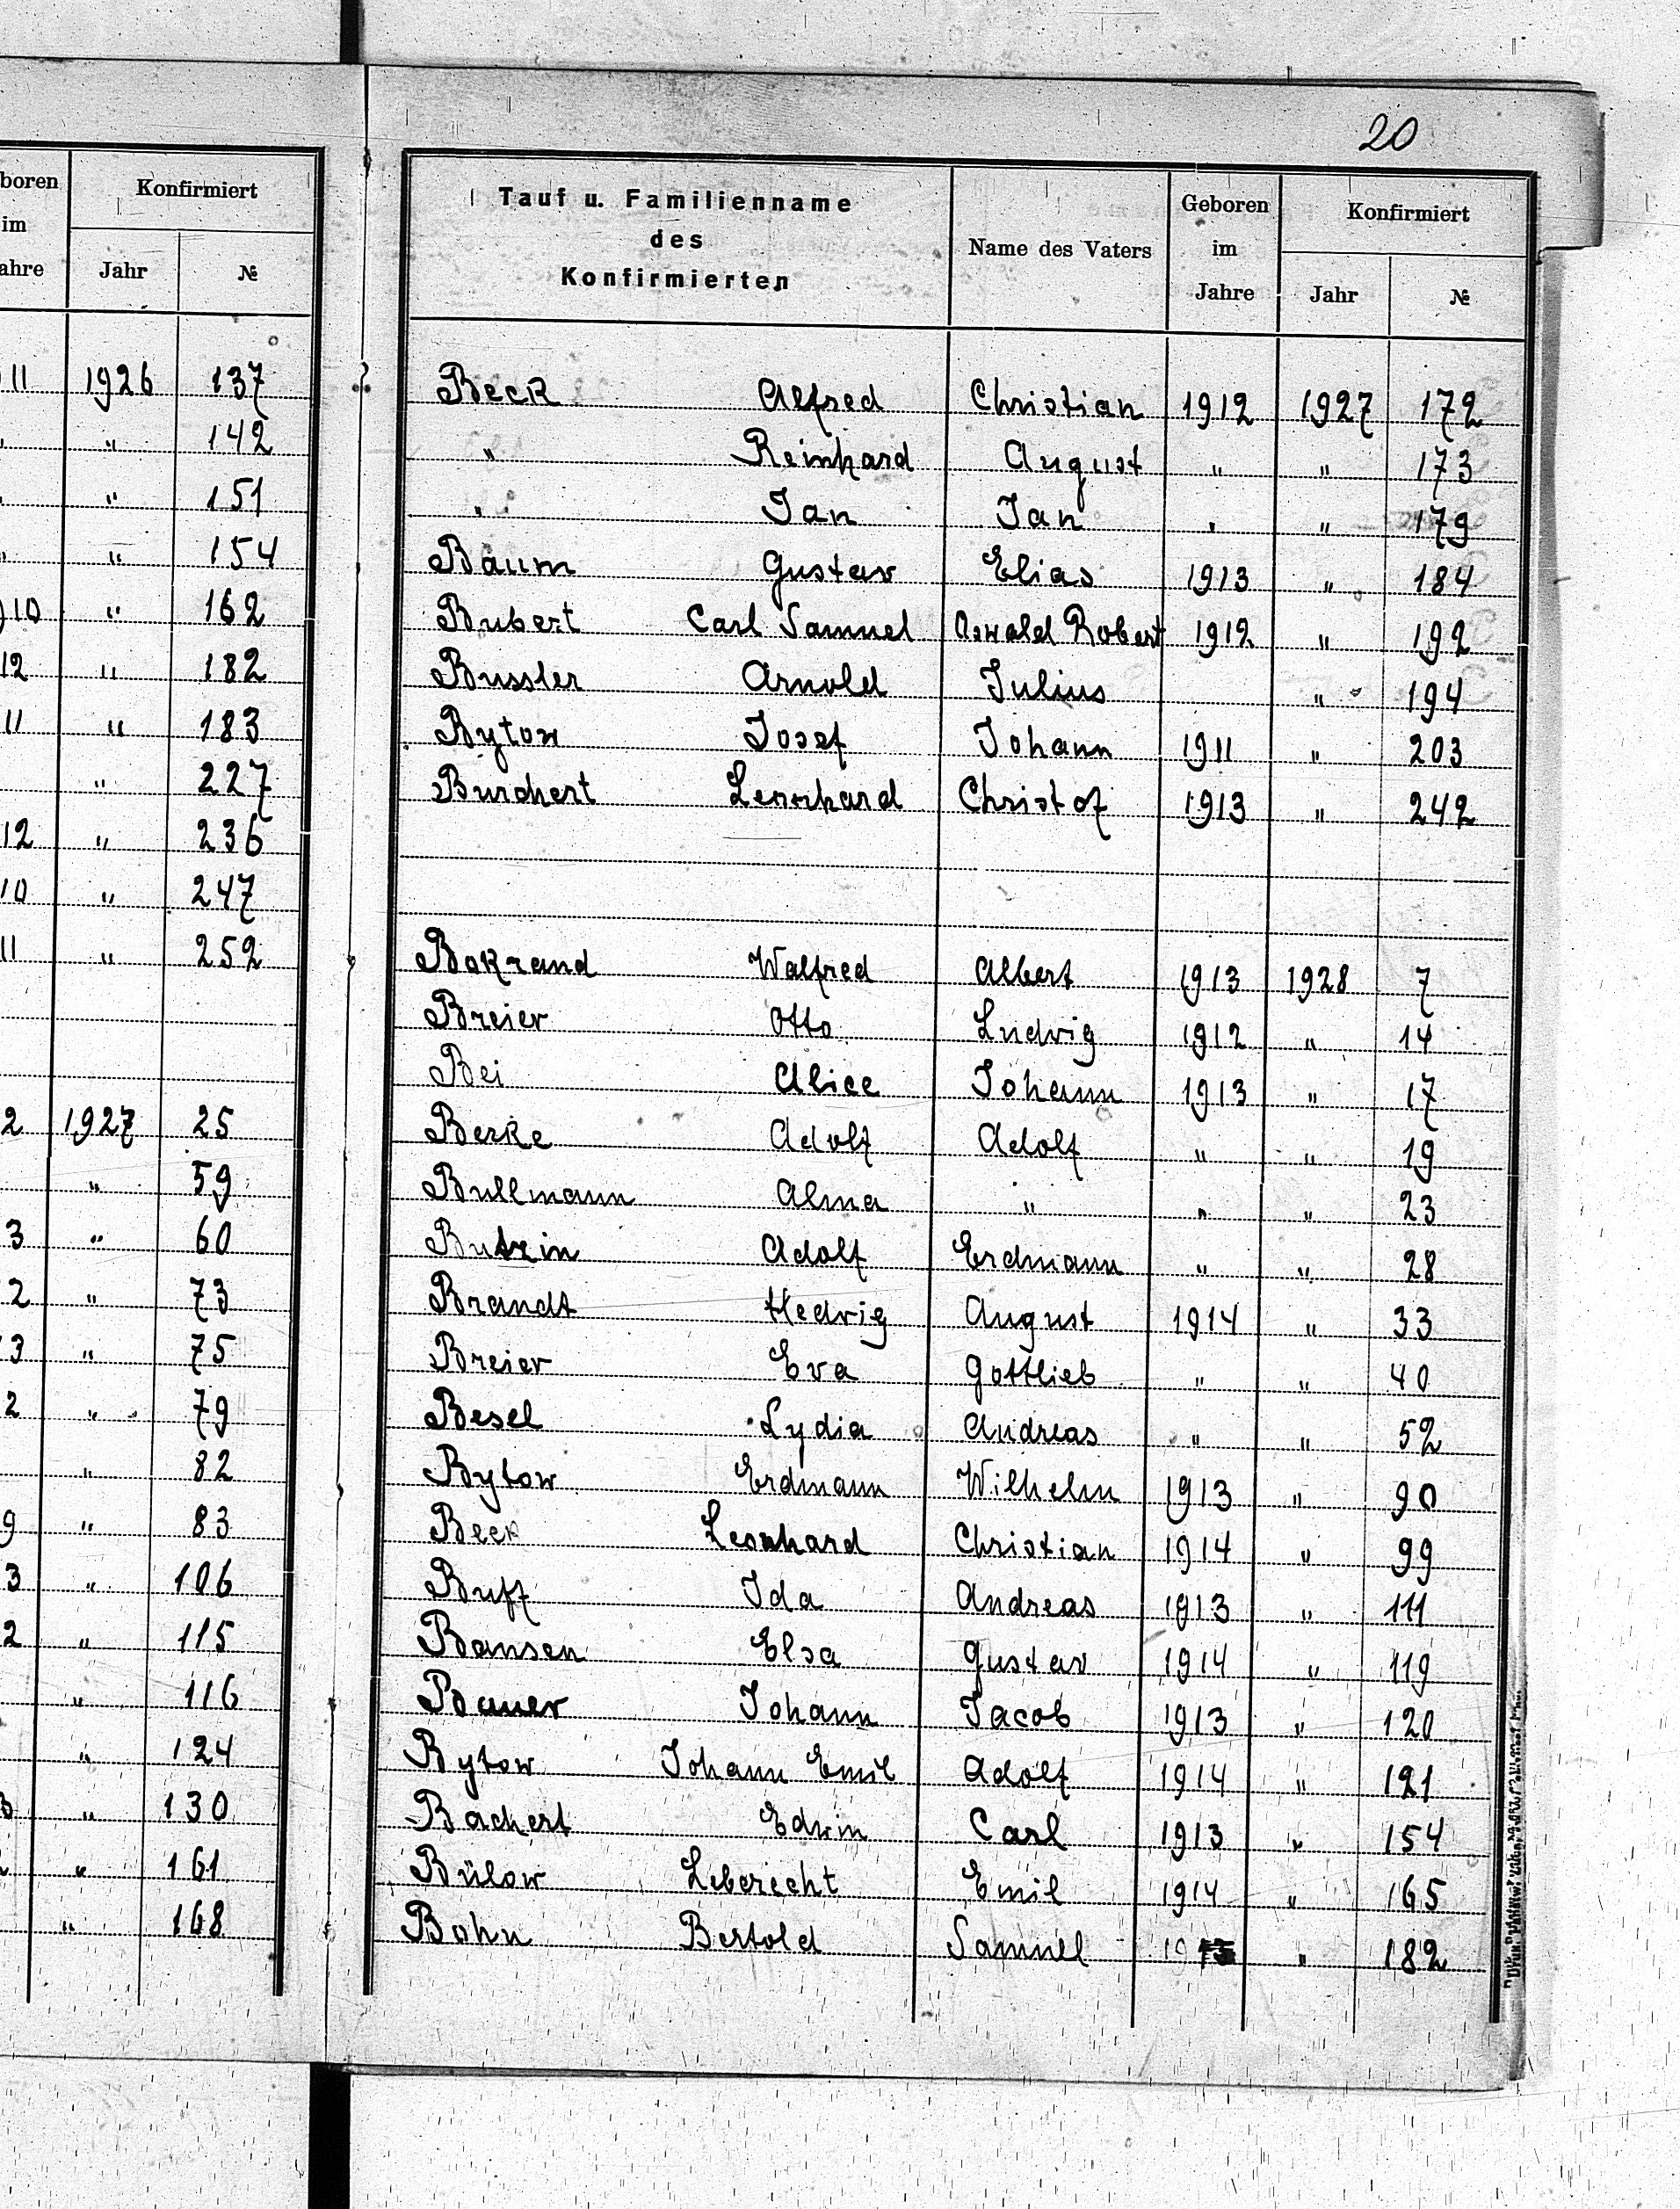 20
boren
im
ahre
Konfirmiert
Jahr №
11 1926 137
" 142
" 151
" 154
910 " 162
12 " 182
11 " 183
" 227
12 " 236
10 " 247
11 " 252
2 1927 25
" 59
3 " 60
2 " 73
3 " 75
2 " 79
" 82
9 " 83
3 " 106
2 " 115
" 116
" 124
3 " 130
" 161
" 168
Tauf u. Familienname
des
Konfirmierten
Name des Vaters
Geboren
im
Jahre
Konfirmiert
Jahr №
Beck Alfred Christian 1912 1927 172
" Reinhard August " " 173
" Jan Jan " " 179
Baum Gustav Elias 1913 " 184
Bubert Carl Samuel Oswald Robert 1912 " 192
Bussler Arnold Julius " 194
Bytow Josef Johann 1911 " 203
Burchert Leonhard Christof 1913 " 242
Bokrand Walfred Albert 1913 1928 7
Breier Otto Ludvig 1912 " 14
Bei Alice Johann 1913 " 17
Berke Adolf Adolf " " 19
Bullmann Alma " " " 23
Butzin Adolf Erdmann " " 28
Brandt Hedvig August 1914 " 33
Breier Eva Gottlieb " " 40
Besel Lydia Andreas " " 52
Bytow Erdmann Wilhelm 1913 " 90
Beck Leonhard Christian 1914 " 99
Buff Ida Andreas 1913 " 111
Bansen Elsa Gustav 1914 " 119
Bauer Johann Jacob 1913 " 120
Bytow Johann Emil Adolf 1914 " 121
Bachert Edwin Carl 1913 " 154
Bülow Leberecht Emil 1914 " 165
Bohn Bertold Samuel " 182